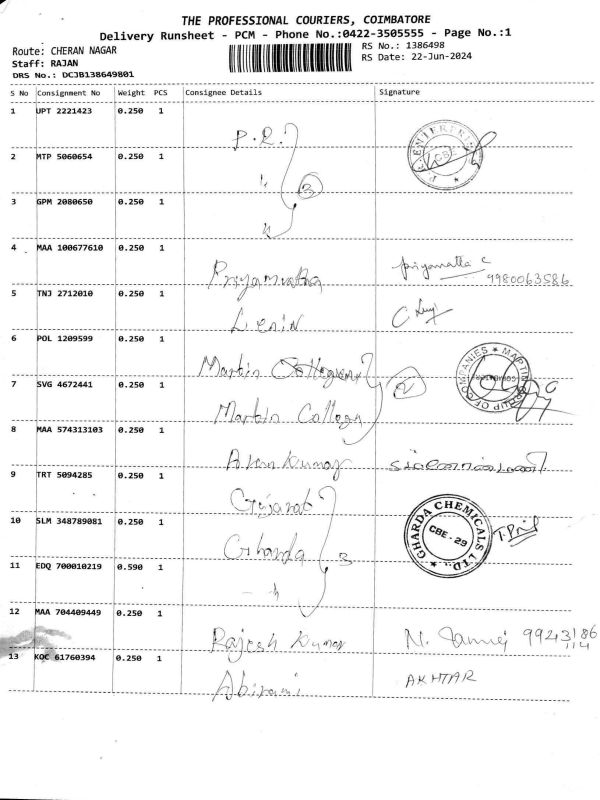 THE PROFESSIONAL COURIERS, COIMBATORE
Delivery Runsheet - PCM - Phone No.:0422-3505555 - Page No.:1
Route: CHERAN NAGAR
RS No.: 1386498
Staff: RAJAN
RS Date: 22-Jun-2024
DRS No.: DCJB138649801
S No Consignment No Weight PCS Consignee Details Signature
1 UPT 2221423 0.250 1
P.R.
ENTERPRI
CBE
2 MTP 5060654 0.250 1
"
3
3 GPM 2080650 0.250 1
"
4 MAA 100677610 0.250 1
priyamalla c
9980063586
5 TNJ 2712010 0.250 1
Lenin
6 POL 1209599 0.250 1
Martin
MARTIN GROUP OF COMPANIES
7 SVG 4672441 0.250 1
Martin
2
8 MAA 574313103 0.250 1
Kumar
9 TRT 5094285 0.250 1
Gujarat
10 SLM 348789081 0.250 1
Gharda 3
GHARDA CHEMICALS LTD.,
CBE - 29
11 EDQ 700010219 0.590 1
- "
12 MAA 704409449 0.250 1
Rajesh Kumar N. 9943186
114
13 KQC 61760394 0.250 1
Abirami AKHTAR